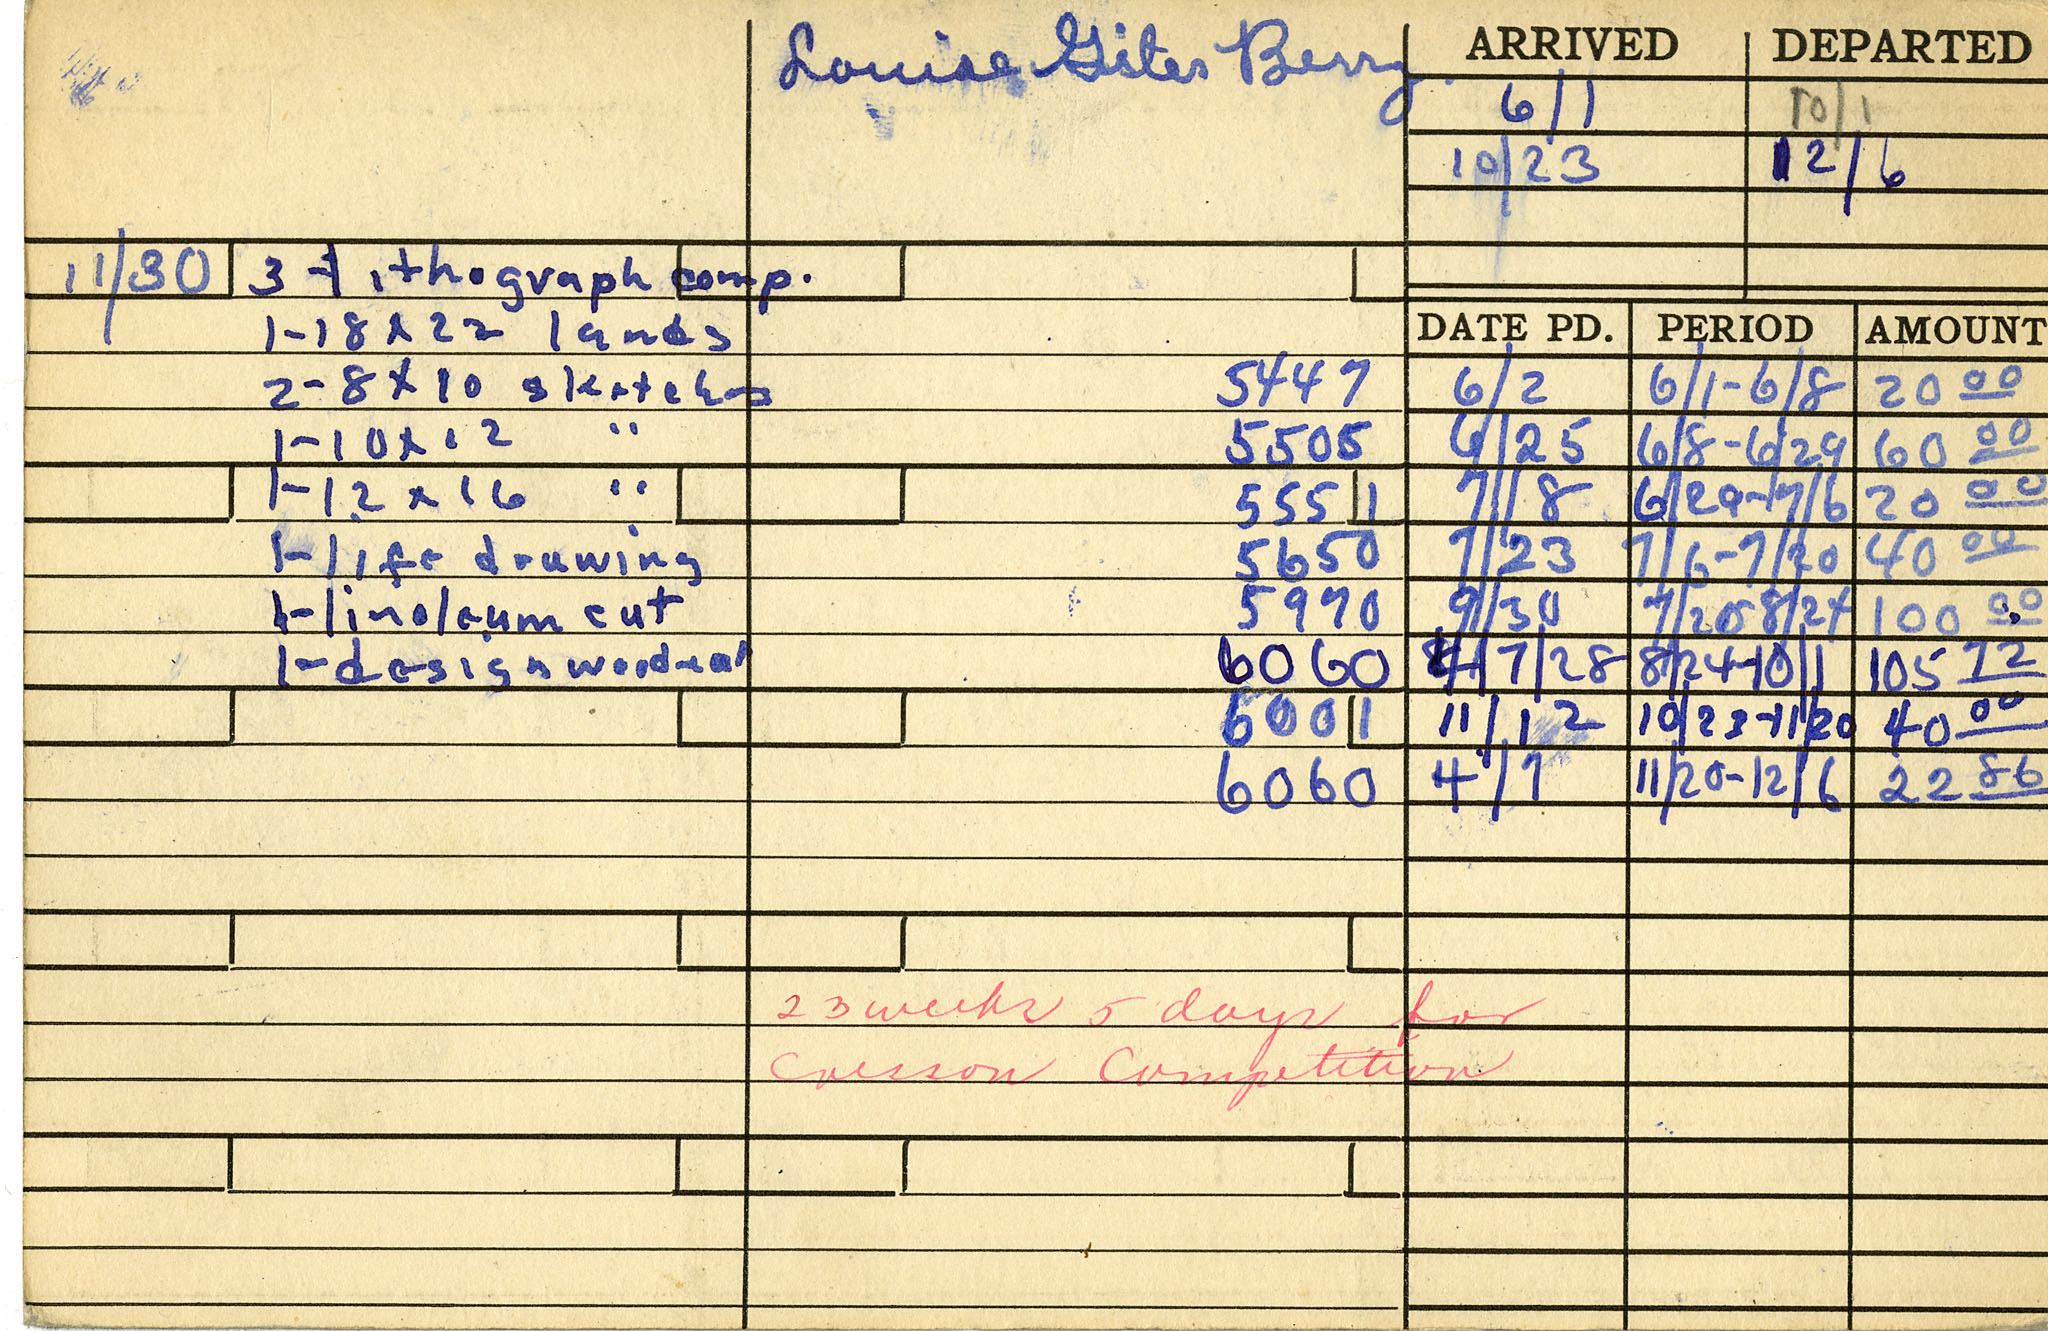 Louise Giles Berry
ARRIVED DEPARTED
6/1 10/1
10/23 12/6
11/30 3-lithograph comp.
1-18x22 lands
2-8x10 sketches
1-10x12 "
1-12x16 "
1-life drawing
1-linoleum cut
1-design woodcut
DATE PD. PERIOD AMOUNT
5447 6/2 6/1-6/8 20 00
5505 6/25 6/8-6/29 60 00
5551 7/8 6/29-7/6 20 00
5650 7/23 7/6-7/20 40 00
5970 9/30 7/20-8/24 100 00
6060 4/7/28 8/24-10/1 105 72
6001 11/12 10/23-11/20 40 00
6060 4/7 11/20-12/6 22 86
23 weeks 5 days for
Cresson Competition